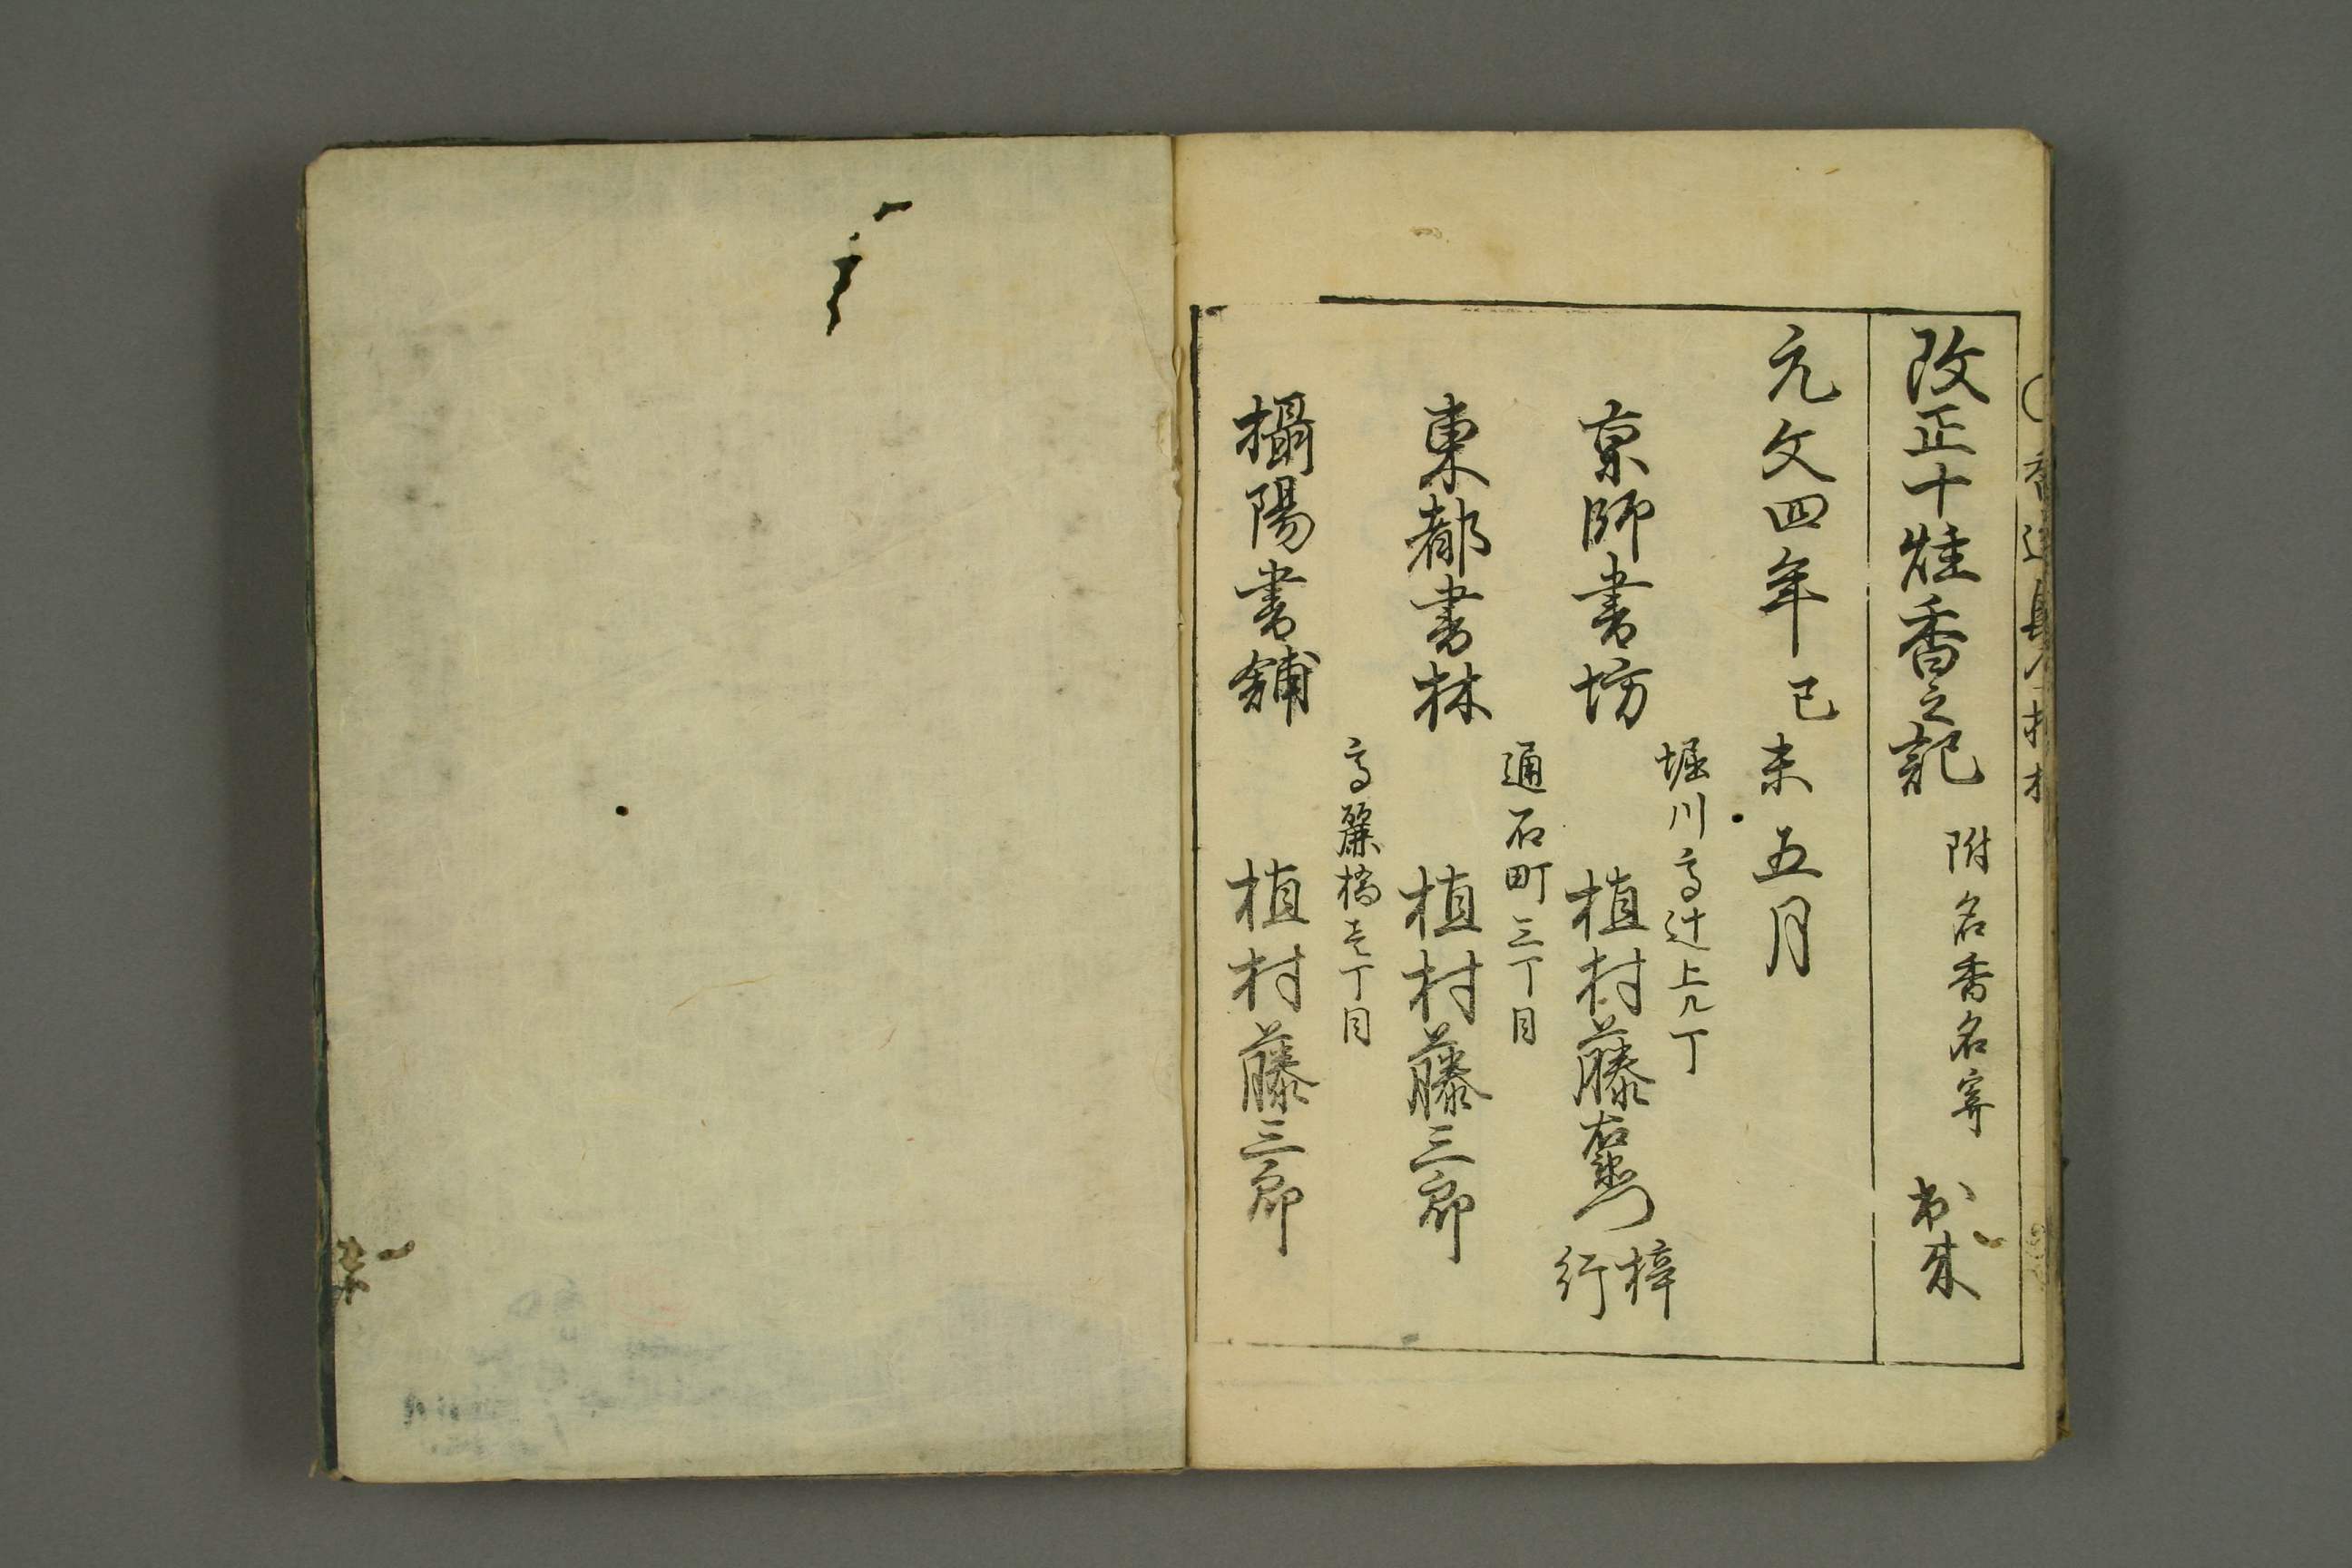 改正十炷香之記 附名香名寄 出来
元文四年己未五月
堀川高辻上ル丁
京師書坊 植村藤右衛門 梓行
通石町三丁目
東都書林 植村藤三郎
高麗橋壱丁目
攝陽書舗 植村藤三郎